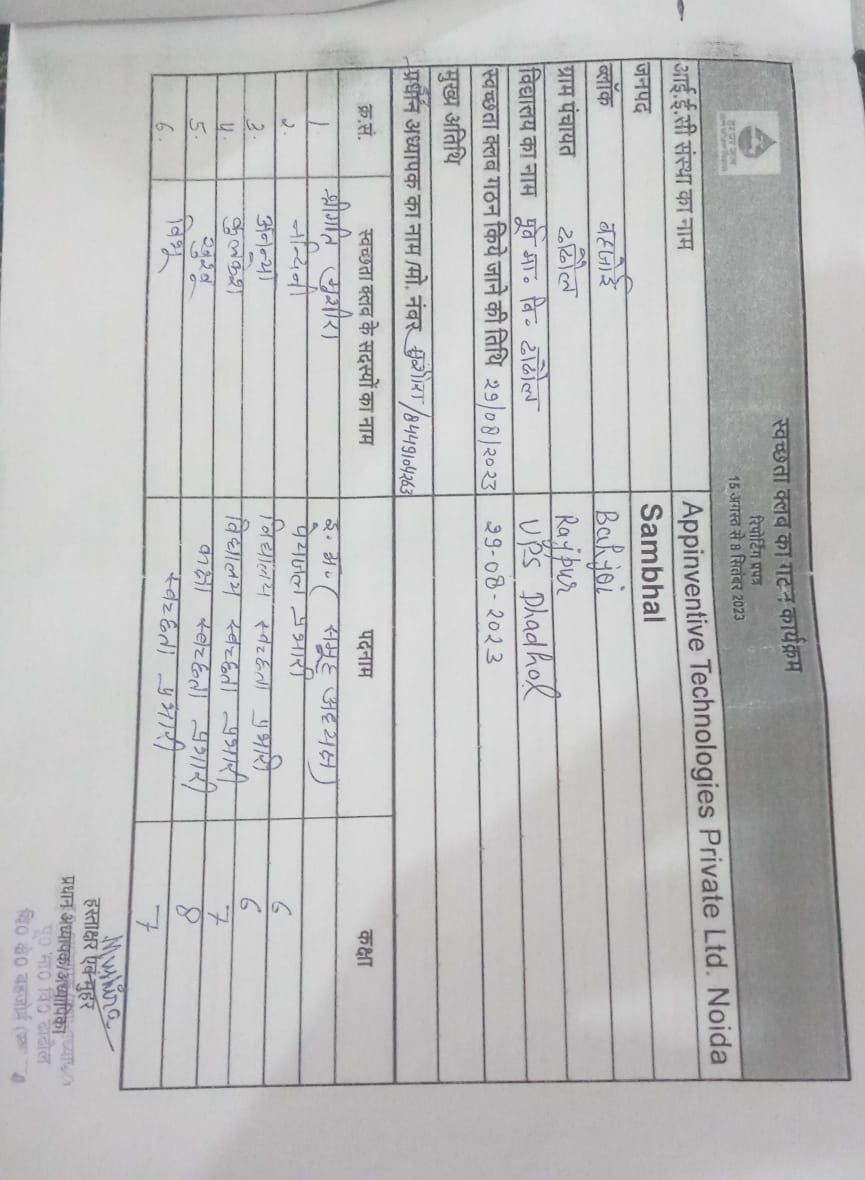 स्वच्छता क्लब का गठन कार्यक्रम
रिपोर्टिंग प्रपत्र
15 अगस्त से 8 सितंबर 2023
आई.ई.सी संस्था का नाम Appinventive Technologies Private Ltd. Noida
जनपद Sambhal
ब्लॉक बहजोई Bahjoi
ग्राम पंचायत ढढौल Rajpur
विद्यालय का नाम पूर्व मा० वि० ढाढौल UPS Dhadhol
स्वच्छता क्लब गठन किये जाने की तिथि 29/08/2023 29-08-2023
मुख्य अतिथि
प्रधान अध्यापक का नाम /मो. नंबर मुंशीरा /8449104263
क्र.सं. स्वच्छता क्लब के सदस्यों का नाम पदनाम कक्षा
1. श्रीमति मुशीरा इ० अ० ( समूह अध्यक्ष)
2. नन्दिनी पेयजल प्रभारी 6
3. अनन्या विद्यालय स्वच्छता प्रभारी 6
4. कुलकश विद्यालय स्वच्छता प्रभारी 7
5. खुशबू कक्षा स्वच्छता प्रभारी 8
6. विभू स्वच्छता प्रभारी 7
Munira
हस्ताक्षर एवं मुहर
प्रधान अध्यापक/अध्यापिका